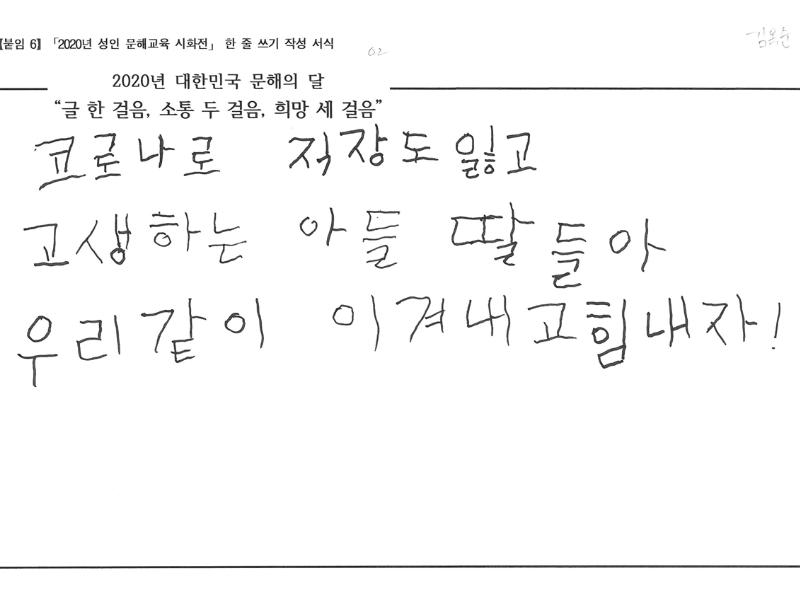 [붙임 6] 「2020년 성인 문해교육 시화전」 한 줄 쓰기 작성 서식
02
2020년 대한민국 문해의 달
“글 한 걸음, 소통 두 걸음, 희망 세 걸음”
코로나로 직장도 잃고
고생하는 아들 딸들아
우리같이 이겨내고힘내자!